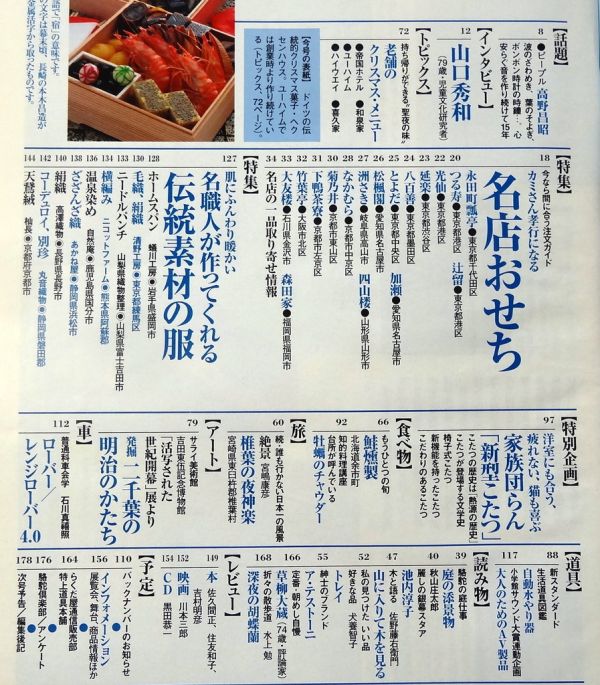 語で「宿」の意味です。
文字は幕末頃、長崎の本木昌造が
金属活字から取ったものです。
【今号の表紙】 ドイツの伝
統的クリスマス菓子・ヘク
センハウス。ユーハイムで
は創業時より作り続けてい
る(トピックス、72ページ)。
【話題】
8
●ピープル 高野昌昭
波のさわめき、葉のそよぎ、
ボンボン時計の時鐘…。心
安らぐ音を作り続けて15年
【インタビュー】
12
山口秀和
(79歳・児童文化研究者)
【トピックス】
72
持ち帰りができる“聖夜の味”
老舗の
クリスマス・メニュー
●帝国ホテル ●和泉家
●ユーハイム
●ハイウェイ ●喜久家
【特集】
18
今なら間に合う注文ガイド
カミさん孝行になる
名店おせち
永田町瓢亭●東京都千代田区
20
つる寿●東京都港区 辻留●東京都港区
22
光仙●東京都港区
23
延楽●東京都渋谷区
24
八百善●東京都墨田区
25
とよだ●東京都中央区 加瀬●愛知県名古屋市
26
松楓閣●愛知県名古屋市
27
洲さき●岐阜県高山市 四山楼●山形県山形市
28
なかむら●京都市中京区
30
菊乃井●京都市東山区
31
下鴨茶寮●京都市左京区
32
竹葉亭●大阪市北区
33
大友楼●石川県金沢市 森田家●福岡県福岡市
34
名店の一品取り寄せ情報
【特集】
127
肌にふんわり暖かい
名職人が作ってくれる
伝統素材の服
128
ホームスパン 蟻川工房●岩手県盛岡市
130
毛織、絹織 清野工房●東京都練馬区
133
ニードルパンチ 山梨県織物整理●山梨県富士吉田市
134
横編み ニコットファーム●熊本県阿蘇郡
136
温泉染め 自然庵●鹿児島県国分市
138
ざざんざ織 あかね屋●静岡県浜松市
140
絹織 高澤織物●長野県長野市
142
コーデュロイ、別珍 丸音織物●静岡県磐田郡
144
天鵞絨 杣長●京都府京都市
【特別企画】
97
洋室にも合う、
疲れない、猫も喜ぶ
家族団らん
「新型こたつ」
こたつの歴史は「熱源の歴史」
こたつが登場する文学史
椅子式こたつ
新機能を持ったこたつ
こだわりのあるこたつ
【食べ物】
66
もうひとつの旬
鮭燻製
北海道余市町
92
知的料理講座
台所が呼んでいる
牡蠣のチャウダー
【旅】
60
続・誰も行かない日本一の風景
絶景 宮嶋康彦
椎葉の夜神楽
宮崎県東臼杵郡椎葉村
【アート】
79
サライ美術館
吉田東伍記念博物館
「活写された
世紀開幕」展より
発掘 二千葉の
明治のかたち
【車】
112
普通科車会学 石川真禧照
ローバー/
レンジローバー4.0
【道具】
新スタンダード
生活道具図鑑
89
自動水やり器
117
小学館サウンド大賞連動企画
大人のためのAV製品
【読み物】
39
駱駝の庭仕事
庭の添景物
40
秋山庄太郎
麗しの銀幕スタア
池内淳子
47
木と語る 佐野藤右衛門
山に入りて木を見る
52
私の見つけたいい品
好きな品 犬養智子
トレイ
55
紳士のブランド
ア・テストーニ
166
定番・朝めし自慢
草柳大蔵(74歳・評論家)
168
折々の散歩道・水上 勉
深夜の胡蝶蘭
【レビュー】
149
本 佐久間正、住友和子、
吉村明彦
152
映画 川本三郎
154
CD 黒田恭一
【予定】
110
●バックナンバーのお知らせ
156
インフォメーション
展覧会、舞台、商品情報ほか
164
特上道具本舗
らくだ屋通信販売部
176
駱駝倶楽部●アンケート
178
次号予告/編集後記